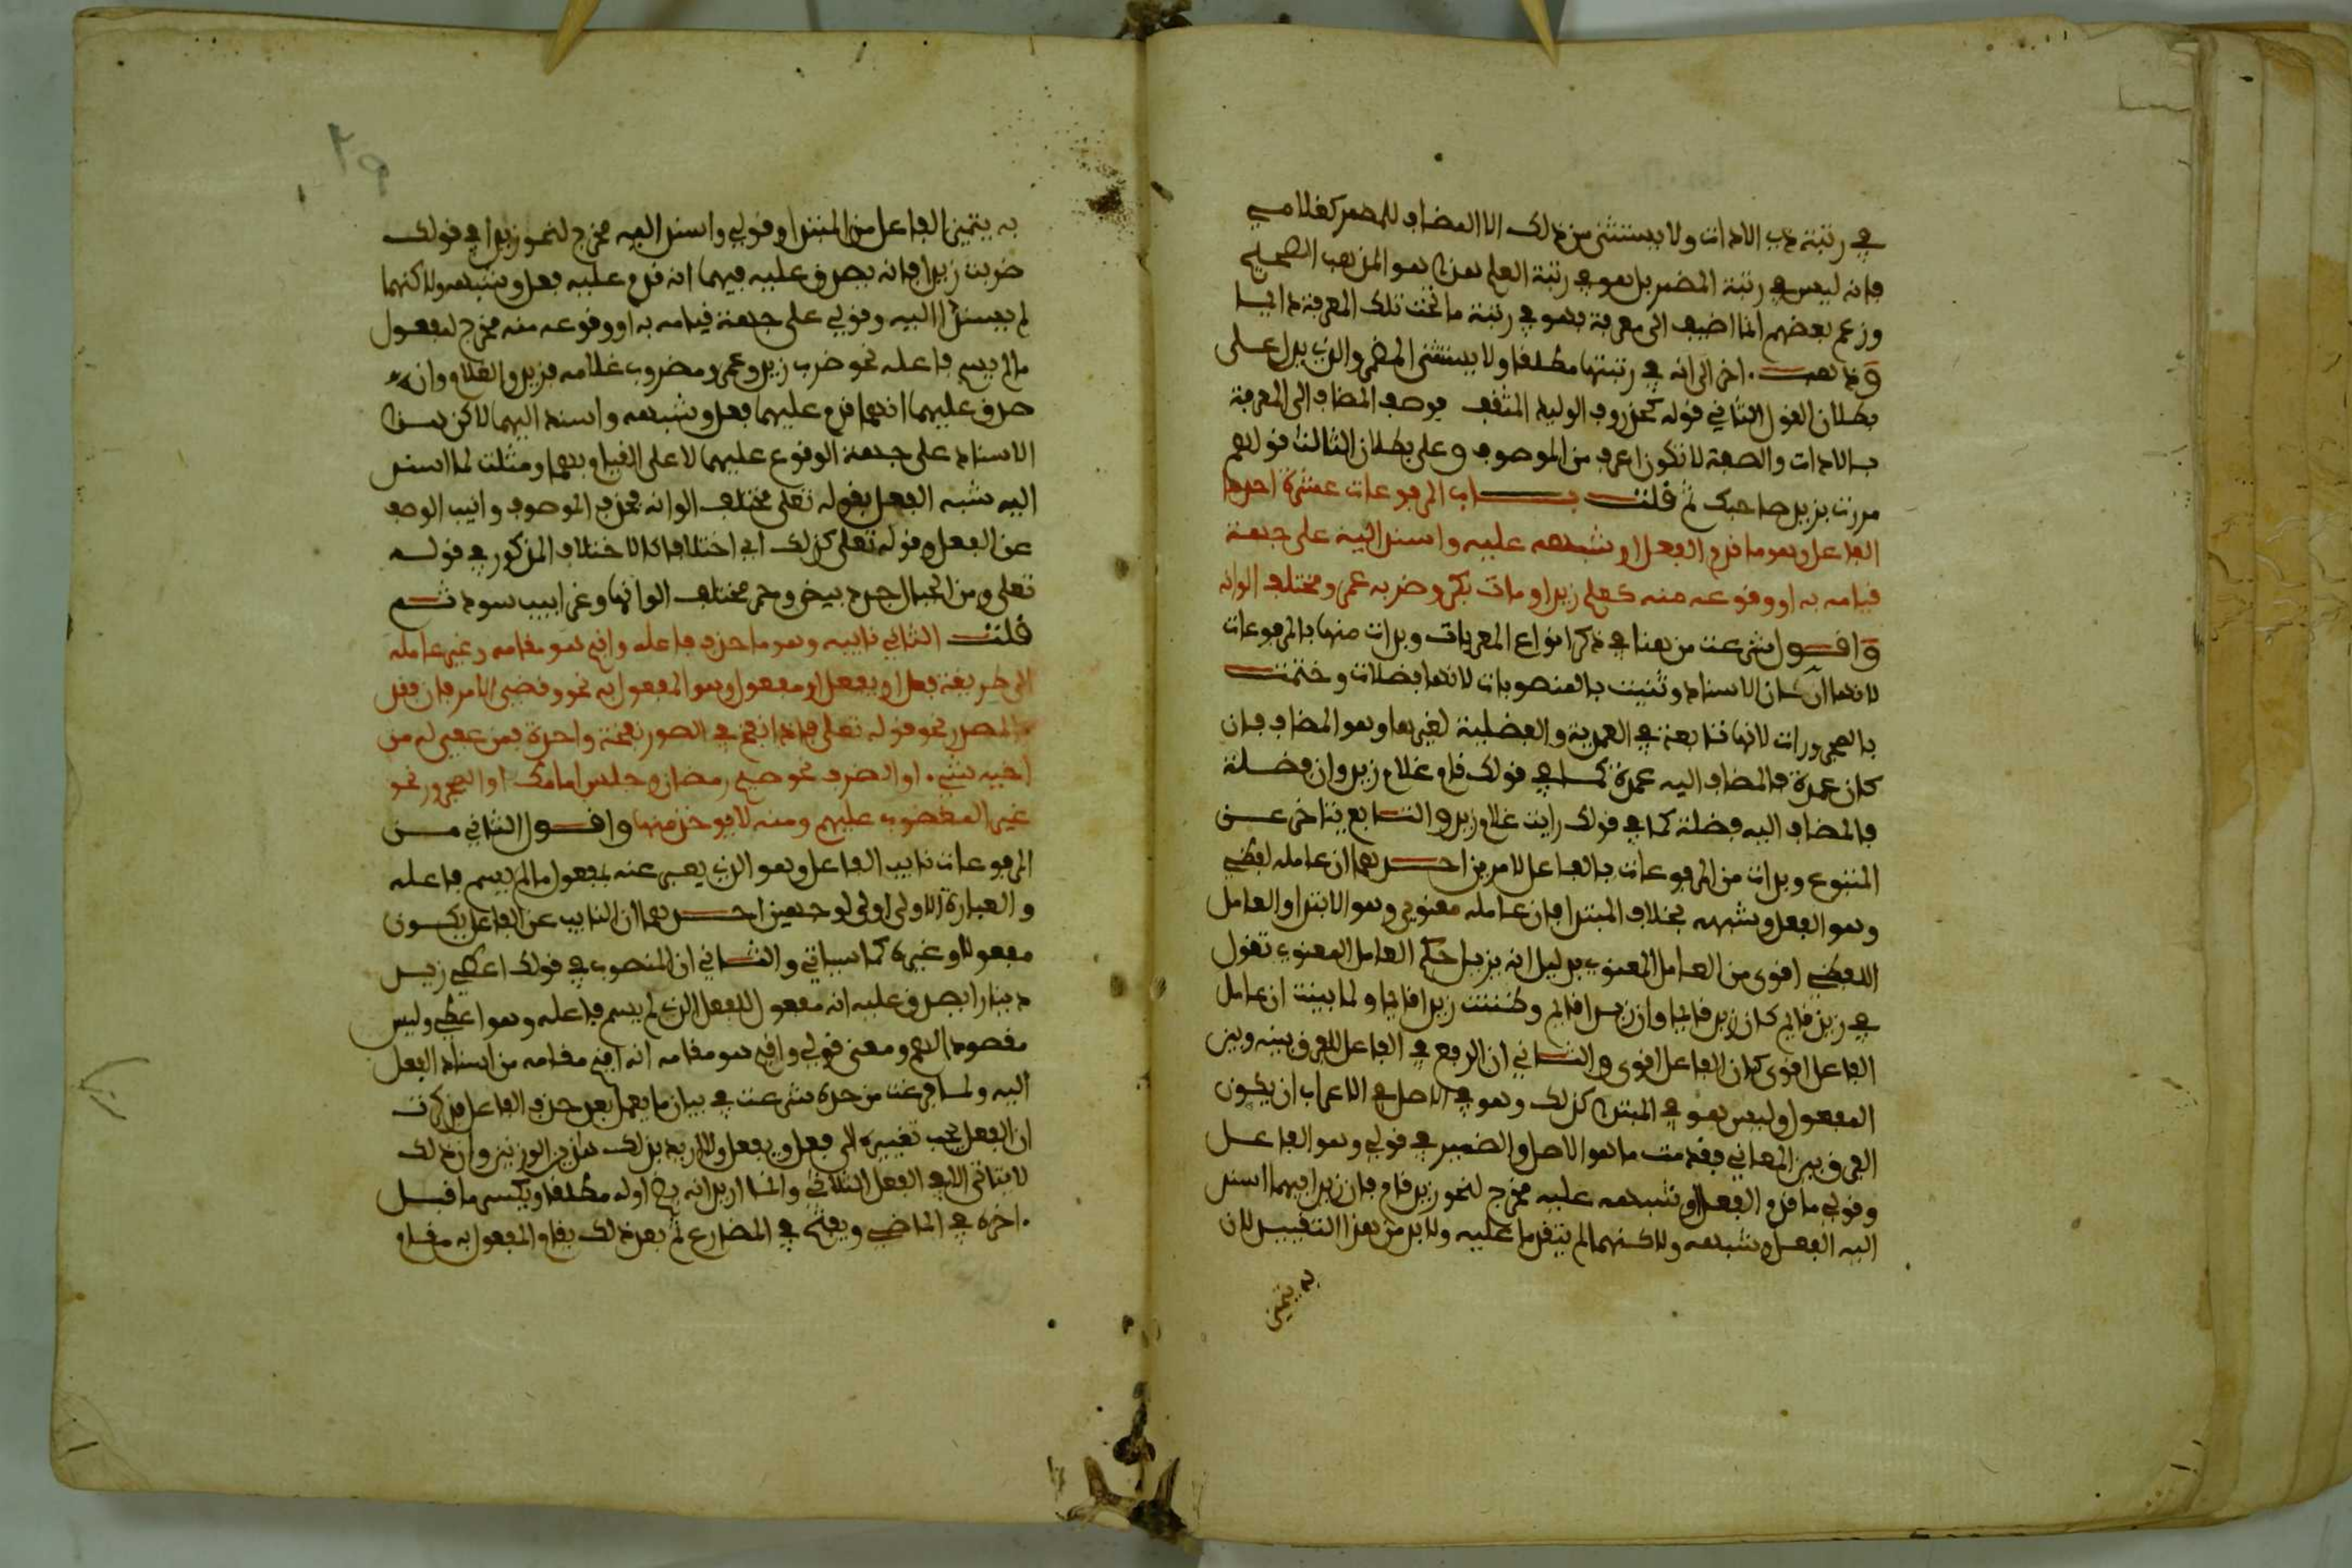 في رتبة ذي الاداة ولا يستثنى من ذلك الا المضاف للمضمر كغلامي
فانه ليس في رتبة المضمر بل هو في رتبة العلم هذا هو المذهب الصحيح
وزعم بعضهم ان ما اضيف الى معرفة فهو في رتبة ما تحت تلك المعرفة دايما
وذهب اخر الى انه في رتبتها مطلقا ولا يستثنى المضمر والذي يدل على
بطلان القول الثاني قوله كخذروف الوليد المثقب فوصف المضاف الى المعرفة
بالادات والصفة لا تكون اعرف من الموصوف وعلى بطلان الثالث قولهم
مررت بزيد صاحبك ثم قلت باب المرفوعات عشرة احدها
الفاعل وهو ما قدم الفعل او شبهه عليه واسند اليه على جهة
قيامه به او وقوعه منه كعلم زيد او مات بكر وضرب عمر ومختلف الوانه
واقول شرعت من هنا في ذكر انواع المعربات وبدات منها بالمرفوعات
لانها اركان الاسناد وثنيت بالمنصوبات لانها فضلات وختمت
بالمجرورات لانها تابعة في العمدية والفضلية لغيرها وهو المضاف فان
كان عمدة فالمضاف اليه عمدة كما في قولك قام غلام زيد وان فضلة
فالمضاف اليه فضلة كما في قولك رايت غلام زيد والتابع يتاخر عن
المتبوع وبدات من المرفوعات بالفاعل لامرين احدهما ان عامله لفظي
وهو الفعل وشبهه بخلاف المبتدا فان عامله معنوي وهو الابتدا والعامل
اللفظي اقوى من العامل المعنوي بدليل انه يزيل حكم العامل المعنوي تقول
في زيد قايم كان زيد قايما وان زيدا قايم وظننت زيدا قايما ولما بينت ان عامل
الفاعل اقوى كان الفاعل اقوى والثاني ان الرفع في الفاعل للفرق بينه وبين
المفعول وليس هو في المبتدا كذلك وهو في الاصل في الاعراب ان يكون
للفرق بين المعاني فقدمت ما هو الاصل والضمير في قولي وهو الفاعل
وقولي ما قدم الفعل او شبهه عليه مخرج لنحو زيد قام فان زيدا فيهما اسند
اليه الفعل وشبهه ولاكنهما لم يتقدما عليه ولا بد من هذا التقييد لان
به يتميز
به يتميز الفاعل من المبتدا وقولي واسند اليه مخرج لنحو زيدا في قولك
ضربت زيدا فانه يصدق عليه فيهما انه قدم عليه فعل وشبهه ولاكنهما
لم يسندا اليه وقولي على جهة قيامه به او وقوعه منه مخرج لمفعول
ما لم يسم فاعله نحو ضرب زيد وعمرو مضروب غلامه فزيد والغلام وان
صدق عليهما انهما قدم عليهما فعل وشبهه واسند اليهما لاكن هذا
الاسناد على جهة الوقوع عليهما لا على القيام بهما ومثلت لما اسند
اليه شبه الفعل بقوله تعلى مختلف الوانه فحذف الموصوف وانيب الوصف
عن الفعل وقوله تعلى كذلك اي اختلافا كالاختلاف المذكور في قوله
تعلى ومن الجبال جدد بيض وحمر مختلف الوانها وغرابيب سود ثم
قلت الثاني نايبه وهو ما حذف فاعله واقيم هو مقامه وغير عامله
الى طريقة فعل او يفعل او مفعول وهو المفعول به نحو وقضي الامر فان فقد
فالمصدر نحو قوله تعلى فاذا نفخ في الصور نفخة واحدة فمن عفي له من
اخيه شيء او الظرف نحو صيم رمضان وجلس امامك او المجرور نحو
غير المغضوب عليهم ومنه لا يوخذ منها واقول الثاني من
المرفوعات نايب الفاعل وهو الذي يعبر عنه بمفعول ما لم يسم فاعله
والعبارة الاولى اولى لوجهين احدهما ان النايب عن الفاعل يكون
مفعولا وغيره كما سياتي والثاني ان المنصوب في قولك اعطي زيد
دينارا يصدق عليه انه مفعول للفعل الذي لم يسم فاعله وهو اعطي وليس
مقصودا لهم ومعنى قولي واقيم هو مقامه انه اقيم مقامه من اسناد الفعل
اليه ولما فرغت من حده شرعت في بيان ما يعمل بعد حذف الفاعل فذكرت
ان الفعل يجب تغييره الى فعل ويفعل ولا اريد بذلك هذين الوزنين وان ذلك
لا يتاتى الا في الفعل الثلاثي وانما اريد انه يضم اوله مطلقا ويكسر ما قبل
اخره في الماضي ويفتح في المضارع ثم بعد ذلك يقام المفعول به مقام